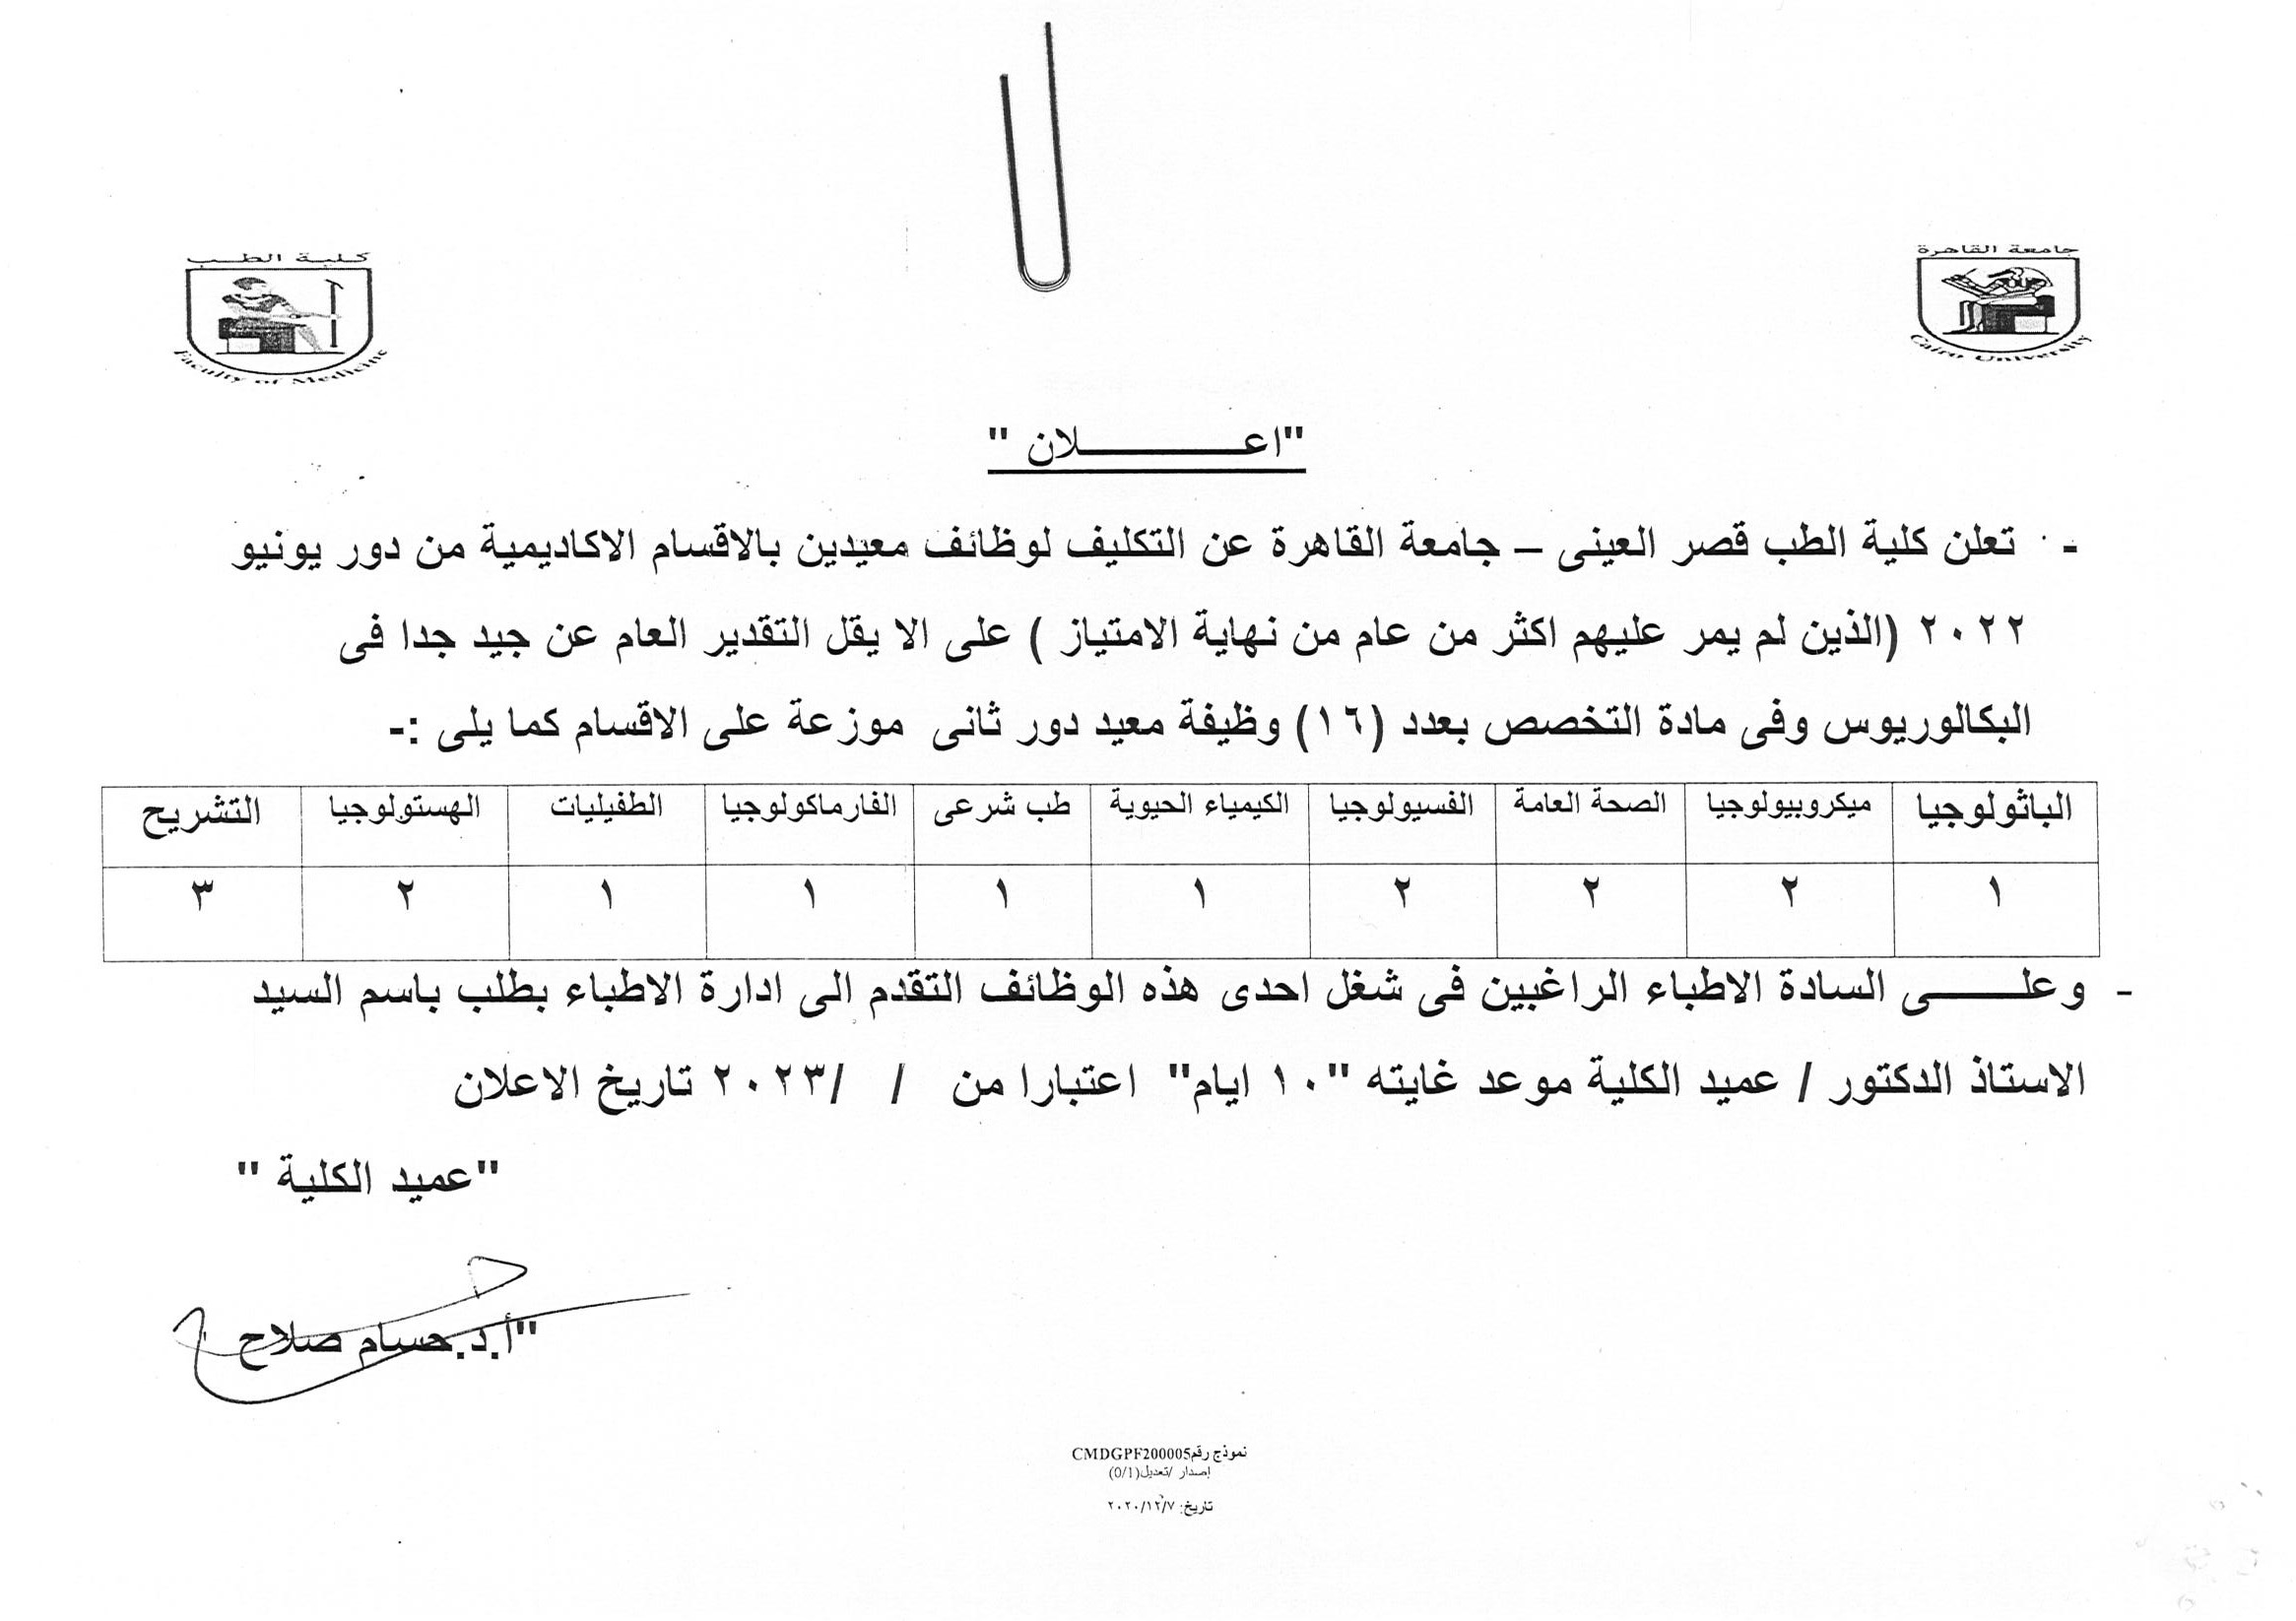 جامعة القاهرة
Cairo University
كلية الطب
Faculty of Medicine
"اعـــــــــــلان "
- تعلن كلية الطب قصر العينى – جامعة القاهرة عن التكليف لوظائف معيدين بالاقسام الاكاديمية من دور يونيو
٢٠٢٢ (الذين لم يمر عليهم اكثر من عام من نهاية الامتياز ) على الا يقل التقدير العام عن جيد جدا فى
البكالوريوس وفى مادة التخصص بعدد (١٦) وظيفة معيد دور ثانى موزعة على الاقسام كما يلى :-
الباثولوجيا ميكروبيولوجيا الصحة العامة الفسيولوجيا الكيمياء الحيوية طب شرعى الفارماكولوجيا الطفيليات الهستولوجيا التشريح
١ ٢ ٢ ٢ ١ ١ ١ ١ ٢ ٣
- وعلـــــى السادة الاطباء الراغبين فى شغل احدى هذه الوظائف التقدم الى ادارة الاطباء بطلب باسم السيد
الاستاذ الدكتور / عميد الكلية موعد غايته "١٠ ايام" اعتبارا من / /٢٠٢٣ تاريخ الاعلان
"عميد الكلية "
"أ.د.حسام صلاح
نموذج رقمCMDGPF200005
إصدار /تعديل(0/1)
تاريخ: ٢٠٢٠/١٢/٧